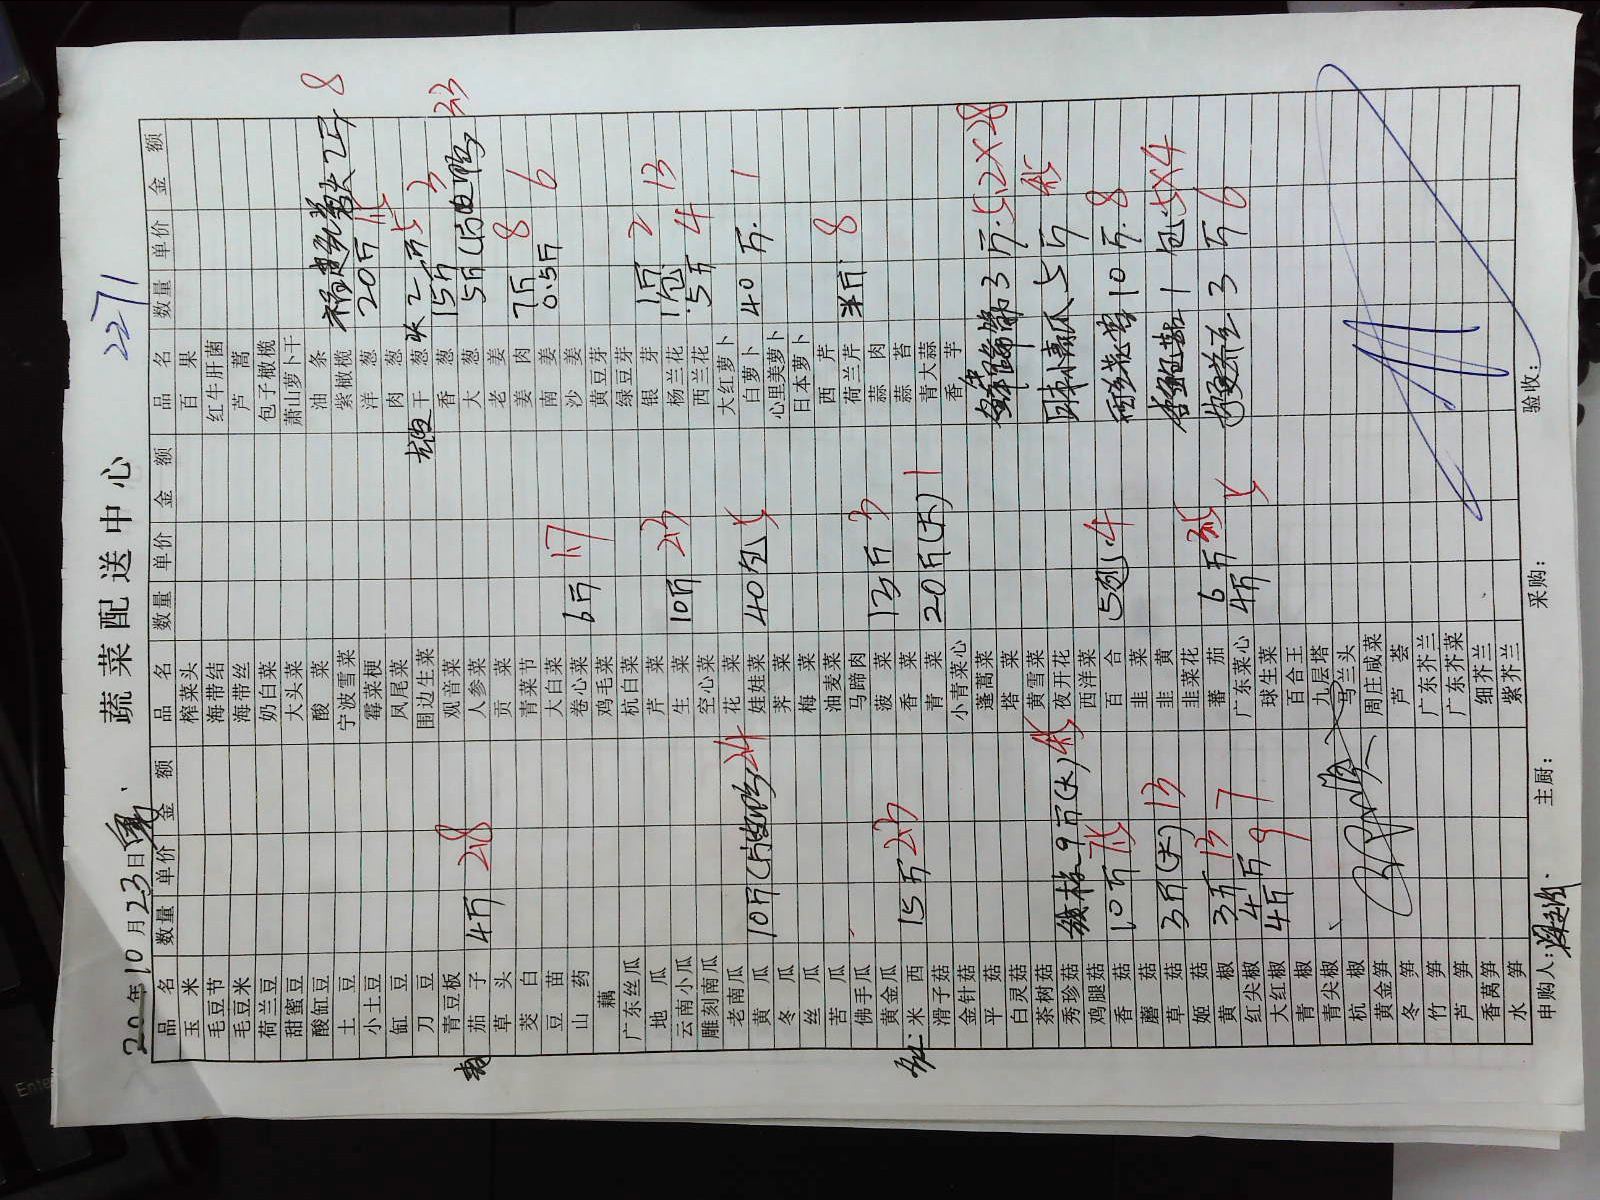 蔬菜配送中心
2271
2010年10月23日
品名 数量 单价 金额 品名 数量 单价 金额 品名 数量 单价 金额
玉米 榨菜头 百果
毛豆节 海带结 红牛肝菌
毛豆米 海带丝 芦蒿
荷兰豆 奶白菜 包子橄榄
甜蜜豆 大头菜 萧山萝卜干
酸缸豆 酸菜 油条 8
土豆 宁波雪菜 紫橄榄
小土豆 霉菜梗 洋葱 20斤
缸豆 凤尾菜 肉葱
刀豆 围边生菜 干葱 2斤 3
青豆板 观音菜 香葱 15斤 23
茄子 4斤 28 人参菜 大葱 5斤
草头 贡菜 老姜
茭白 青菜节 姜肉 7斤 8
豆苗 大白菜 南姜 0.5斤 6
山药 卷心菜 6斤 17 沙姜
藕 鸡毛菜 黄豆芽
广东丝瓜 杭白菜 绿豆芽
地瓜 芹菜 银芽 1斤 2 13
云南小瓜 生菜 10斤 23 杨兰花 1包
雕刻南瓜 空心菜 西兰花 5斤 4
老南瓜 花菜 大红萝卜
黄瓜 10斤 24 娃娃菜 40包 白萝卜 40斤 1
冬瓜 荠菜 心里美萝卜
丝瓜 梅菜 日本萝卜
苦瓜 油麦菜 西芹
佛手瓜 马蹄肉 荷兰芹 半斤 8
黄金瓜 菠菜 13斤 3 蒜肉
米西 15斤 23 香菜 蒜苔
滑子菇 青菜 20斤(大) 1 青大蒜
金针菇 小青菜心 香芋
平菇 蓬蒿菜 3斤 5.2×28
白灵菇 塔菜
茶树菇 黄雪菜 日本小青瓜 5斤
秀珍菇 9斤(大) 夜开花
鸡腿菇 西洋菜
香菇 10斤 百合 5包 4 10斤 8
蘑菇 韭菜
草菇 3斤(大) 13 韭黄 1包 5×4
姬菇 韭菜花
黄椒 3斤 13 7 蕃茄 6斤 3斤 6
红尖椒 4斤 广东菜心 4斤
大红椒 4斤 9 球生菜
青椒 百合王
青尖椒 九层塔
杭椒 马兰头
黄金笋 周庄咸菜
冬笋 芦荟
竹笋 广东芥兰
芦笋 广东芥菜
香莴笋 细芥兰
水笋 紫芥兰
申购人: 主厨: 采购: 验收: